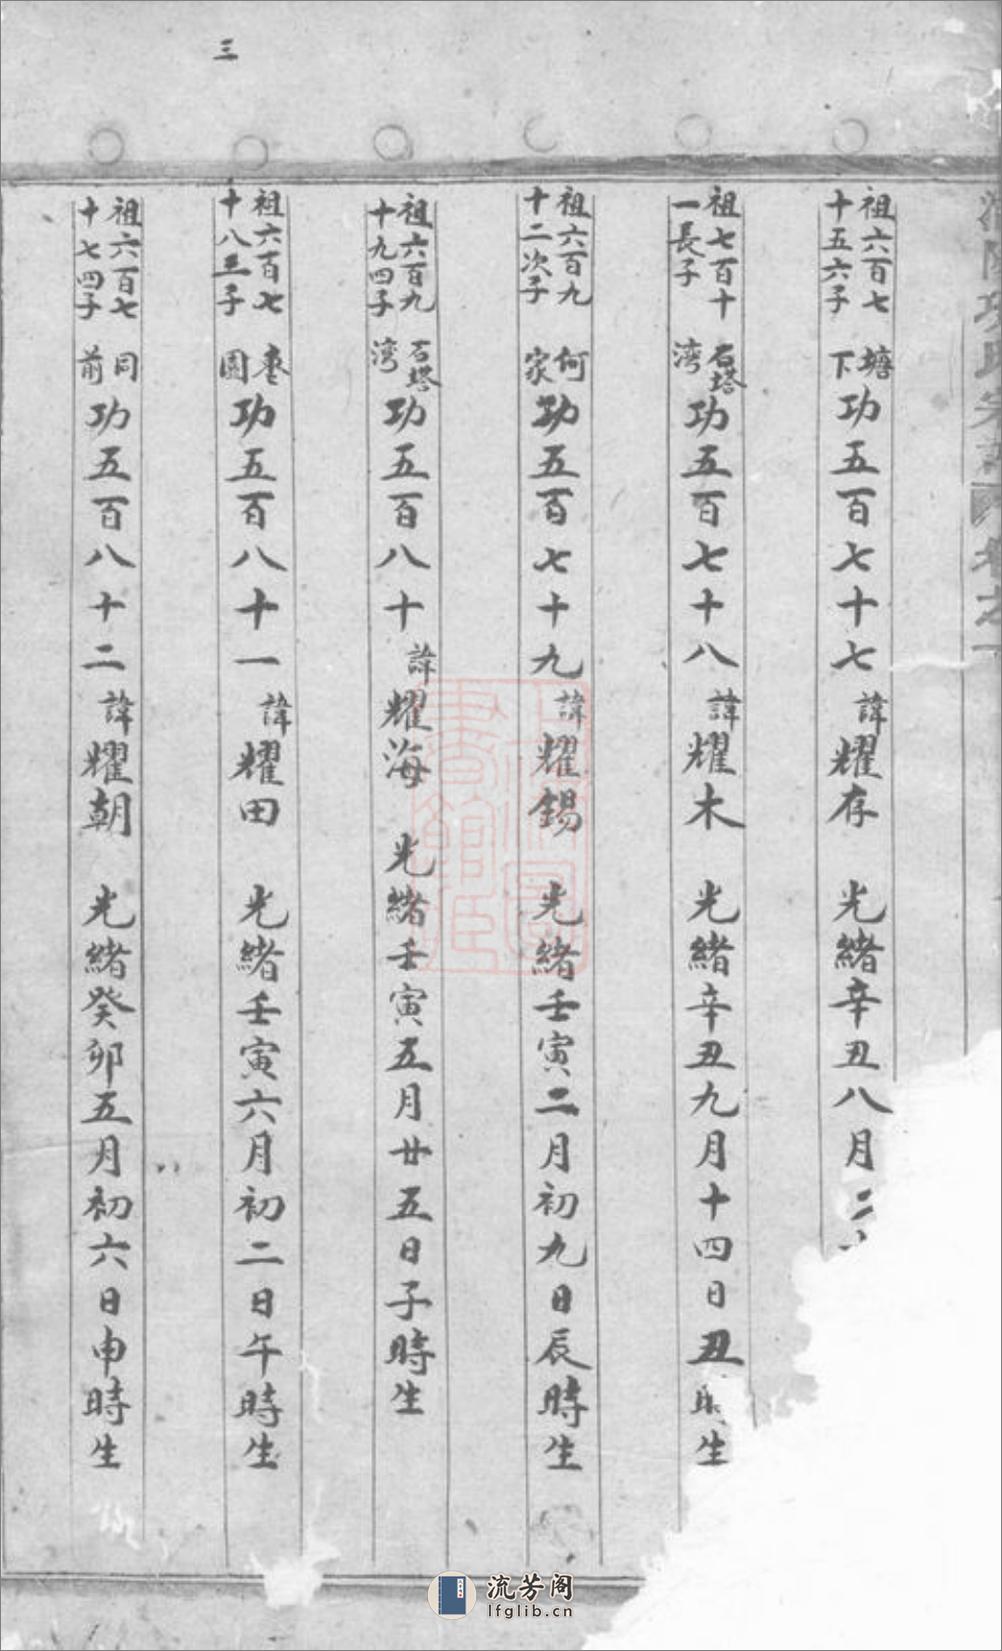 三
祖六百七十五六子 塘下 功五百七十七 諱耀存 光緒辛丑八月二
祖七百十一長子 石塔湾 功五百七十八 諱耀木 光緒辛丑九月十四日丑時生
祖六百九十二次子 何家 功五百七十九 諱耀錫 光緒壬寅二月初九日辰時生
祖六百九十九四子 石塔湾 功五百八十 諱耀海 光緒壬寅五月廿五日子時生
祖六百七十八三子 枣園 功五百八十一 諱耀田 光緒壬寅六月初二日午時生
祖六百七十七四子 同前 功五百八十二 諱耀朝 光緒癸卯五月初六日申時生
流芳阁
lfglib.cn